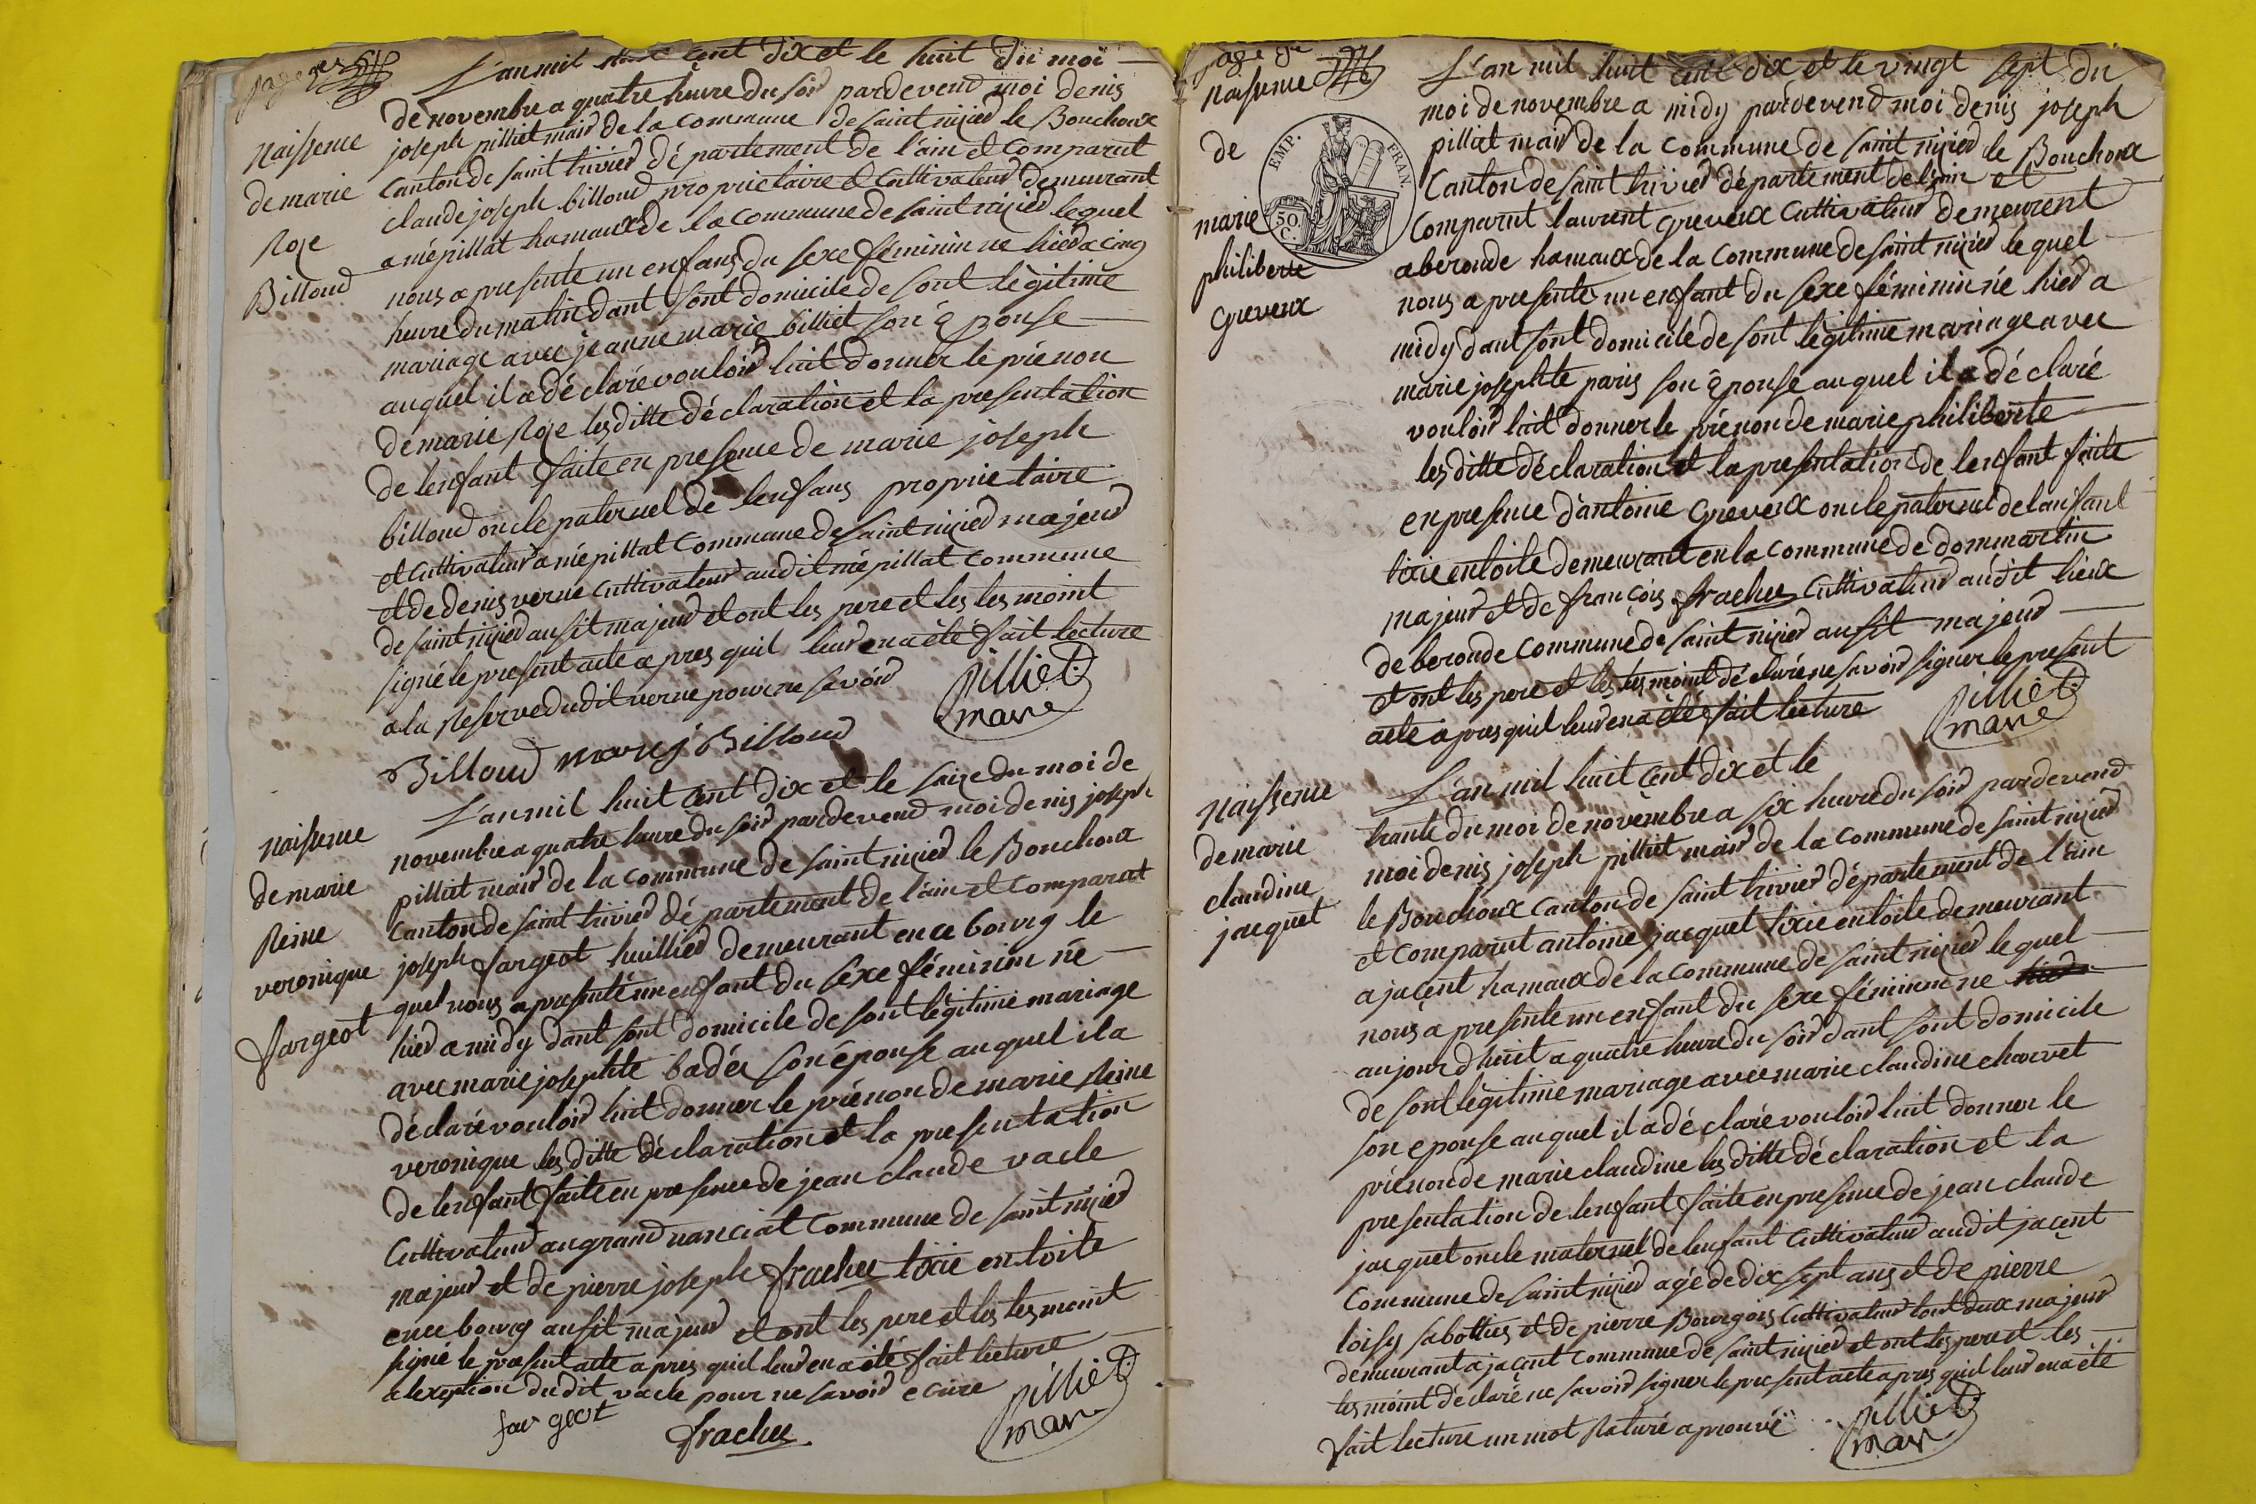 naissence
de marie
Rose
Billoud
L'an mil huit cent dix et le huit du moi
de novembre a quatre heure du soir pardevend moi denis
joseph pilliat mair de la commune de saint nizier le Bouchoux
canton de saint trivier département de l'ain et comparut
claude joseph billoud proprietaire et cultivateur demeurant
a mépillat hamaux de la commune de saint nizier lequel
nous a presente un enfans du sexe féminin ne hier a cinq
heure du matin dant sont domicile de sont légitime
mariage avec jeanne marie billiet son épouse
auquel il a déclaré vouloir luit donner le prénon
de marie Rose les ditte déclaration et la presentation
de lenfant faite en presence de marie joseph
billoud oncle paternel de lenfans proprietaire
et cultivateur a mépillat commune de saint nizier majeur
et de denis verne cultivateur audit mépillat commune
de saint nizier ausit majeur et ont les pere et les tes moint
signé le present acte a pres quil leur en a été fait lecture
a la Reserve dudit verne pour ne savoir
pilliat
maire
Billoud marie j Billoud
naissence
de marie
Reine
veronique
fargeot
L'an mil huit cent dix et le saize du moi de
novembre a quatre heure du soir pardevend moi denis joseph
pilliat mair de la commune de saint nizier le Bouchoux
canton de saint trivier département de l'ain et comparut
joseph fargeot huillier demeurant en ce bourg le
quel nous a presenté un enfant du sexe féminin né
hier a midy dant sont domicile de sont légitime mariage
avec marie josephte badéz son épouse auquel il a
déclaré vouloir luit donner le prénon de marie Reine
veronique les ditte déclaration et la presentation
de lenfant faite en presence de jean claude vacle
cultivateur au grand nanciat commune de saint nizier
majeur et de pierre joseph frachez tixie en toile
en ce bourg ausit majeur et ont les pere et les tes moint
signé le present acte a pres quil leur en a été fait lecture
a lexeption dudit vacle pour ne savoir ecrire
fargeot
frachez
pilliat
mair
page
naissence
de
marie
philiberte
Greveux
EMP. FRAN.
50 C.
L'an mil huit cent dix et le vingt sept du
moi de novembre a midy pardevend moi denis joseph
pilliat mair de la commune de saint nizier le Bouchoux
canton de saint trivier département de l'ain et
comparut laurent Greveux cultivateur demeurent
a beronde hamaux de la commune de saint nizier le quel
nous a presente un enfant du sexe féminin né hier a
midy dant sont domicile de sont légitime mariage avec
marie josephte paris son épouse auquel il a déclaré
vouloir luit donner le prénon de marie philiberte
les ditte déclaration et la presentation de lenfant faite
en presence d'antoine Greveux oncle paternel de lanfant
tixie en toile demeurant en la commune de dommartin
majeur et de françois frachez cultivateur audit lieux
de beronde commune de saint nizier ausit majeur
et ont les pere et les tes moint déclaré ne savoir signer le present
acte a pres quil leur en a été fait lecture
pilliat
maire
naissence
de marie
claudine
jacquet
L'an mil huit cent dix et le
trante du moi de novembre a six heure du soir pardevend
moi denis joseph pilliat mair de la commune de saint nizier
le Bouchoux canton de saint trivier département de l'ain
et comparut antoine jacquet tixie en toile demeurant
a jaçent hamaux de la commune de saint nizier le quel
nous a presente un enfant du sexe féminin ne hier
aujourd huit a quatre heure du soir dant sont domicile
de sont légitime mariage avec marie claudine charvet
son epouse auquel il a déclaré vouloir luit donner le
prénon de marie claudine les ditte déclaration et la
presentation de lenfant faite en presence de jean claude
jacquet oncle maternel de lenfant cultivateur audit jaçent
commune de saint nizier agé de dix sept ans et de pierre
loisy sabottier et de pierre Bourgois cultivateur tout deux majeur
demeurant a jaçent commune de saint nizier et ont les pere et les
tes moint déclaré ne savoir signer le present acte a pres quil leur en a été
fait lecture un mot Raturé aprouvé
pilliat
mair